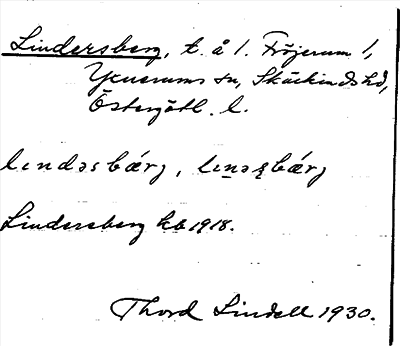 Lindersberg, t. å 1. Fröjerum 1,
Yxnerums sn, Skärkinds hd,
Östergötl. l.
lındəsbǽrj, lın̲əʂbǽrj
Lindersberg kb 1918.
Thord Lindell 1930.